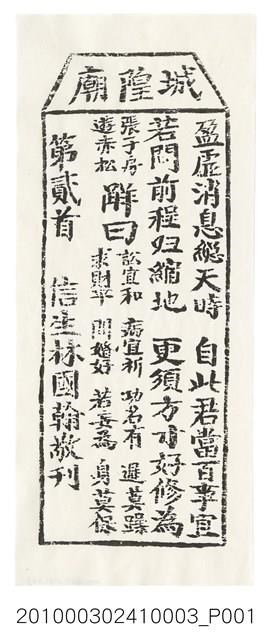 城隍廟
盈虛消息總天時 自此君當百事宜
若問前程归縮地 更須方寸好修為
張子房
遊赤松
解曰
訟宜和 病宜祈 功名有 遲莫躁
求財平 問婚好 若去為 身莫保
第貳首 信生林國翰敬刊
201000302410003_P001